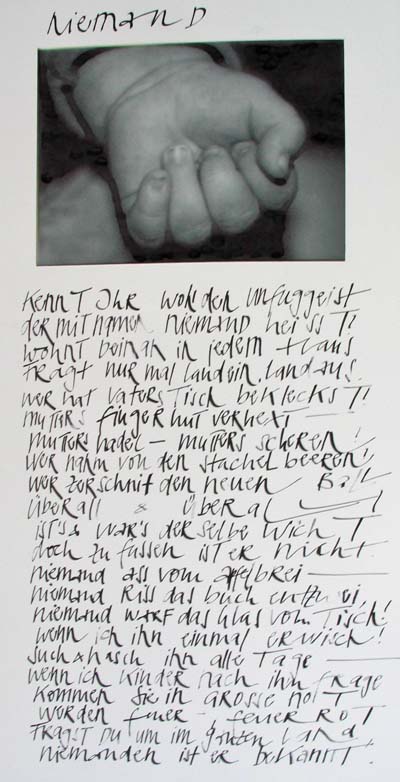 NiemanD
KennT Ihr wohl den Unfuggeist
der mit namen niemanD heissT!
wohnt beinah in jedem Haus
Fragt nur mal landein, landaus.
wer hat vaters Tisch beklecksT!
mutters fingerhut verhext —
mutters nadel — mutters scheren!
wer nahm von den stachelbeeren!
wer zerschnit den neuen Ball
Überall & überal
ist's & war's derselbe Wicht
doch zu fassen ist er nicht.
niemand ass vom apfelbrei —
niemand Riss das buch entzwei,
niemand warf das Glas vom Tisch!
wenn ich ihn einmal erwisch!
such & hasch ihn alle Tage —
wenn ich kinder nach ihm frage
kommen sie in Grosse noT
werden feuer-, feuer RoT
Fragst Du um im ganzen land
niemanden ist er bekannt!